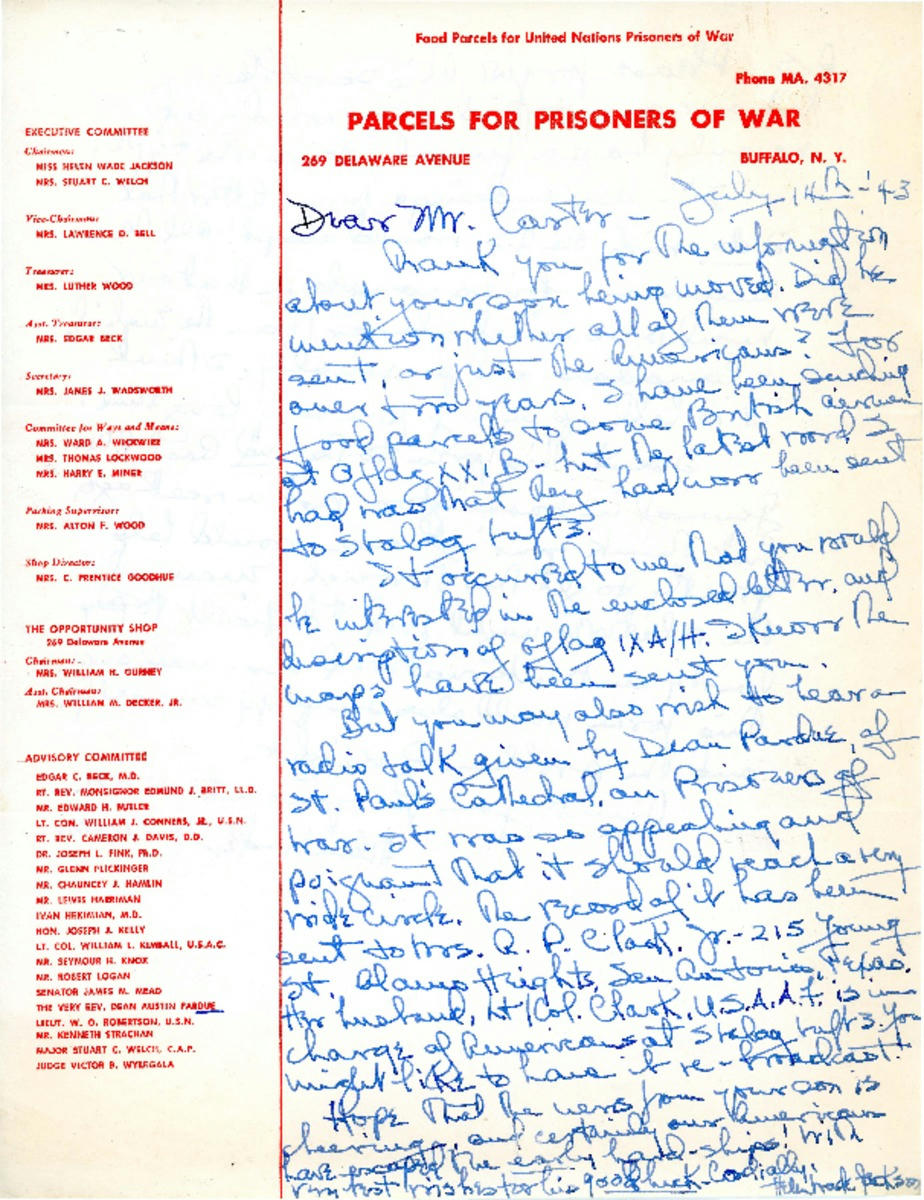 Food Parcels for United Nations Prisoners of War
Phone MA. 4317
PARCELS FOR PRISONERS OF WAR
269 DELAWARE AVENUE BUFFALO, N. Y.
EXECUTIVE COMMITTEE
Chairmen:
MISS HELEN WADE JACKSON
MRS. STUART C. WELCH
Vice-Chairman:
MRS. LAWRENCE D. BELL
Treasurer:
MRS. LUTHER WOOD
Asst. Treasurer:
MRS. EDGAR BECK
Secretary:
MRS. JAMES J. WADSWORTH
Committee for Ways and Means:
MRS. WARD A. WICKWIRE
MRS. THOMAS LOCKWOOD
MRS. HARRY E. MINER
Packing Supervisor:
MRS. ALTON F. WOOD
Shop Director:
MRS. C. PRENTICE GOODHUE
THE OPPORTUNITY SHOP
269 Delaware Avenue
Chairman:
MRS. WILLIAM H. GURNEY
Asst. Chairman:
MRS. WILLIAM M. DECKER, JR.
ADVISORY COMMITTEE
EDGAR C. BECK, M.D.
RT. REV. MONSIGNOR EDMUND J. BRITT, LL.D.
MR. EDWARD H. BUTLER
LT. COM. WILLIAM J. CONNERS, JR., U.S.N.
RT. REV. CAMERON J. DAVIS, D.D.
DR. JOSEPH L. FINK, PH.D.
MR. GLENN FLICKINGER
MR. CHAUNCEY J. HAMLIN
MR. LEWIS HARRIMAN
IVAN HEKIMIAN, M.D.
HON. JOSEPH J. KELLY
LT. COL. WILLIAM L. KIMBALL, U.S.A.C.
MR. SEYMOUR H. KNOX
MR. ROBERT LOGAN
SENATOR JAMES M. MEAD
THE VERY REV. DEAN AUSTIN PARDUE
LIEUT. W. O. ROBERTSON, U.S.N.
MR. KENNETH STRACHAN
MAJOR STUART C. WELCH, C.A.P.
JUDGE VICTOR B. WYLEGALA
July 14th - '43
Dear Mr. Carter -
Thank you for the information
about your son being moved. Did he
mention whether all of them were
sent, or just the Americans? For
over two years, I have been sending
food parcels to some British airmen
at Oflag XXI B - but the latest word I
had was that they had now been sent
to Stalag Luft 3.
It occurred to me that you would
be interested in the enclosed letter, and
description of Oflag IX A/H. I know the
maps have been sent you.
But you may also wish to hear a
radio talk given by Dean Pardue, of
St. Paul's Cathedral, on Prisoners of
War. It was so appealing and
poignant that it should reach a very
wide circle. The record of it has been
sent to Mrs. A. P. Clark, Jr. - 215 Young
St. Alamo Heights, San Antonio, Texas.
Her husband, Lt/Col. Clark, U.S.A.A.F. is in
charge of Americans at Stalag Luft 3. You
might like to have it re-broadcast!
Hope that the news from your son is
cheering, and certainly our Americans
have escaped the early hard-ships! With
very best wishes for his good luck - Cordially,